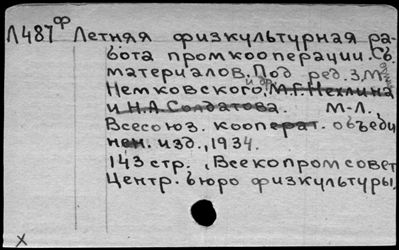 Л487ф Летняя физкультурная ра-
бота промкооперации. Сб.
материалов. Под ред. З.М.
Немковского, и др. М.Г. Нехлина
и Н.А. Солдатова. М-Л.,
Всесоюз. кооперат. объеди
нен. изд., 1934.
143 стр., Всекопромсовет
Центр. бюро физкультуры,
х